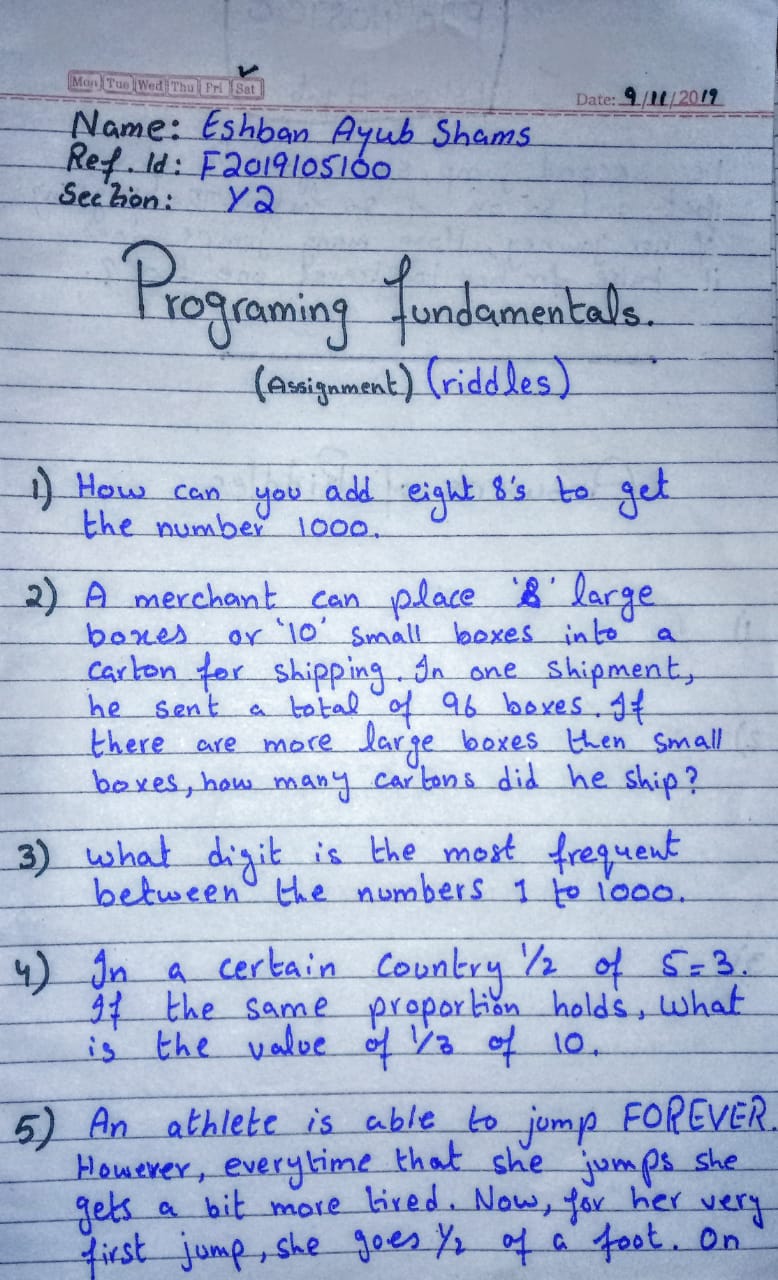 Mon Tue Wed Thu Fri Sat
Date: 9/11/2019
Name: Eshban Ayub Shams
Ref. Id: F2019105100
Section: Y2
Programing fundamentals.
(Assignment) (riddles)
1) How can you add eight 8's to get
the number 1000.
2) A merchant can place '8' large
boxes or '10' small boxes into a
carton for shipping. In one shipment,
he sent a total of 96 boxes. If
there are more large boxes then small
boxes, how many cartons did he ship?
3) what digit is the most frequent
between the numbers 1 to 1000.
4) In a certain country 1/2 of 5=3.
If the same proportion holds, what
is the value of 1/3 of 10.
5) An athlete is able to jump FOREVER.
However, everytime that she jumps she
gets a bit more tired. Now, for her very
first jump, she goes 1/2 of a foot. On